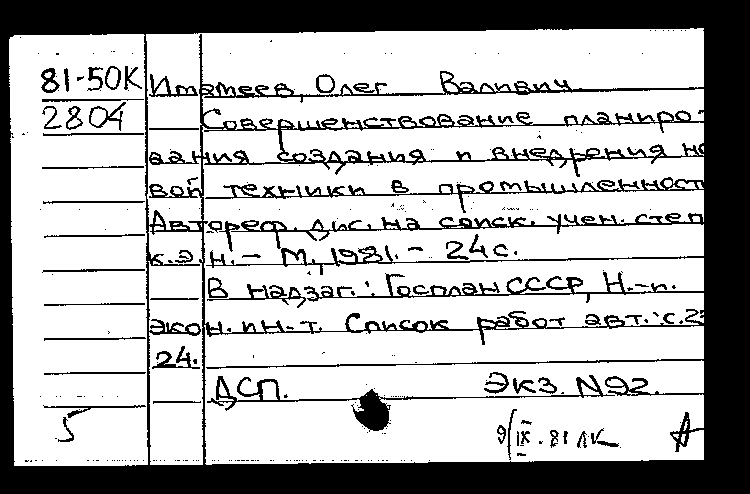 81-50К Иматеев, Олег Валивич
2804 Совершенствование планиро-
вания создания и внедрения но
вой техники в промышленност
Автореф. дис. на соиск. учен. степ
к.э.н. – М., 1981. – 24 с.
В надзаг.: Госплан СССР, Н.-и.
экон. ин-т. Список работ авт.: с. 23
24.
ДСП. Экз. N92.
5 9/IX.81 ЛК А